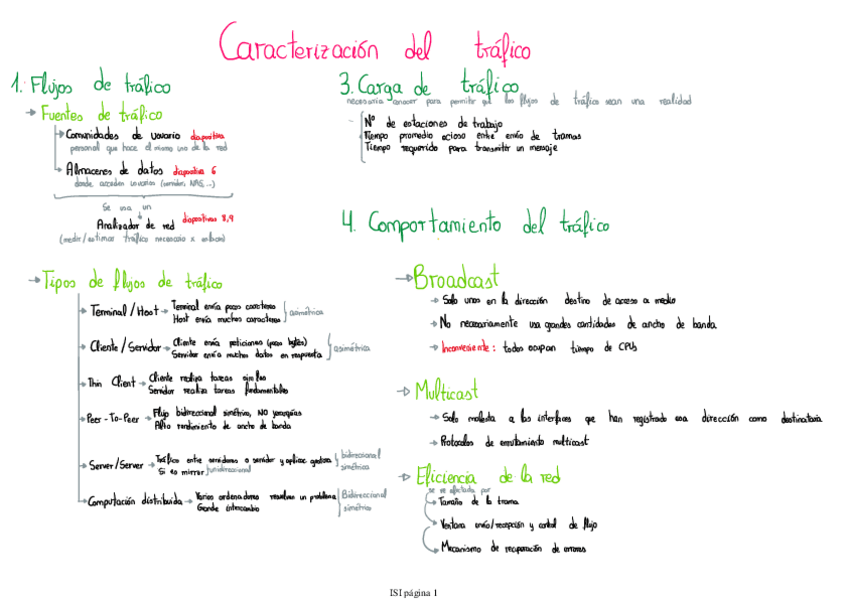 Caracterización del tráfico
1. Flujos de tráfico
→ Fuentes de tráfico
→ Comunidades de usuario diapositiva
personal que hace el mismo uso de la red
→ Almacenes de datos diapositiva 6
donde acceden usuarios (servidor, NAS, ...)
Se usa un
Analizador de red diapositivas 8,9
(medir/estimar tráfico necesario x enlace)
→ Tipos de flujos de tráfico
→ Terminal/Host → Terminal envía pocos caracteres
Host envía muchos caracteres
asimétrico
→ Cliente/Servidor → Cliente envía peticiones (pocos bytes)
Servidor envía muchos datos en respuesta
asimétrica
→ Thin Client → Cliente realiza tareas simples
Servidor realiza tareas fundamentales
→ Peer-To-Peer → Flujo bidireccional simétrico, NO jerarquías
Alto rendimiento de ancho de banda
→ Server/Server → Tráfico entre servidores o servidor y aplicac gestora
Si es mirror unidireccional
bidireccional
simétrica
→ Computación distribuida → Varios ordenadores resuelven un problema
Grande intercambio
Bidireccional
simétrico
3. Carga de tráfico
necesaria conocer para permitir que los flujos de tráfico sean una realidad
Nº de estaciones de trabajo
Tiempo promedio ocioso entre envío de tramas
Tiempo requerido para transmitir un mensaje
4. Comportamiento del tráfico
→ Broadcast
→ Solo unos en la dirección destino de acceso a medio
→ No necesariamente usa grandes cantidades de ancho de banda
→ Inconveniente: todos ocupan tiempo de CPUs
→ Multicast
→ Solo molesta a las interfaces que han registrado esa dirección como destinataria
→ Protocolos de enrutamiento multicast
→ Eficiencia de la red
se ve afectada por
→ Tamaño de la trama
→ Ventana envío/recepción y control de flujo
→ Mecanismo de recuperación de errores
ISI página 1